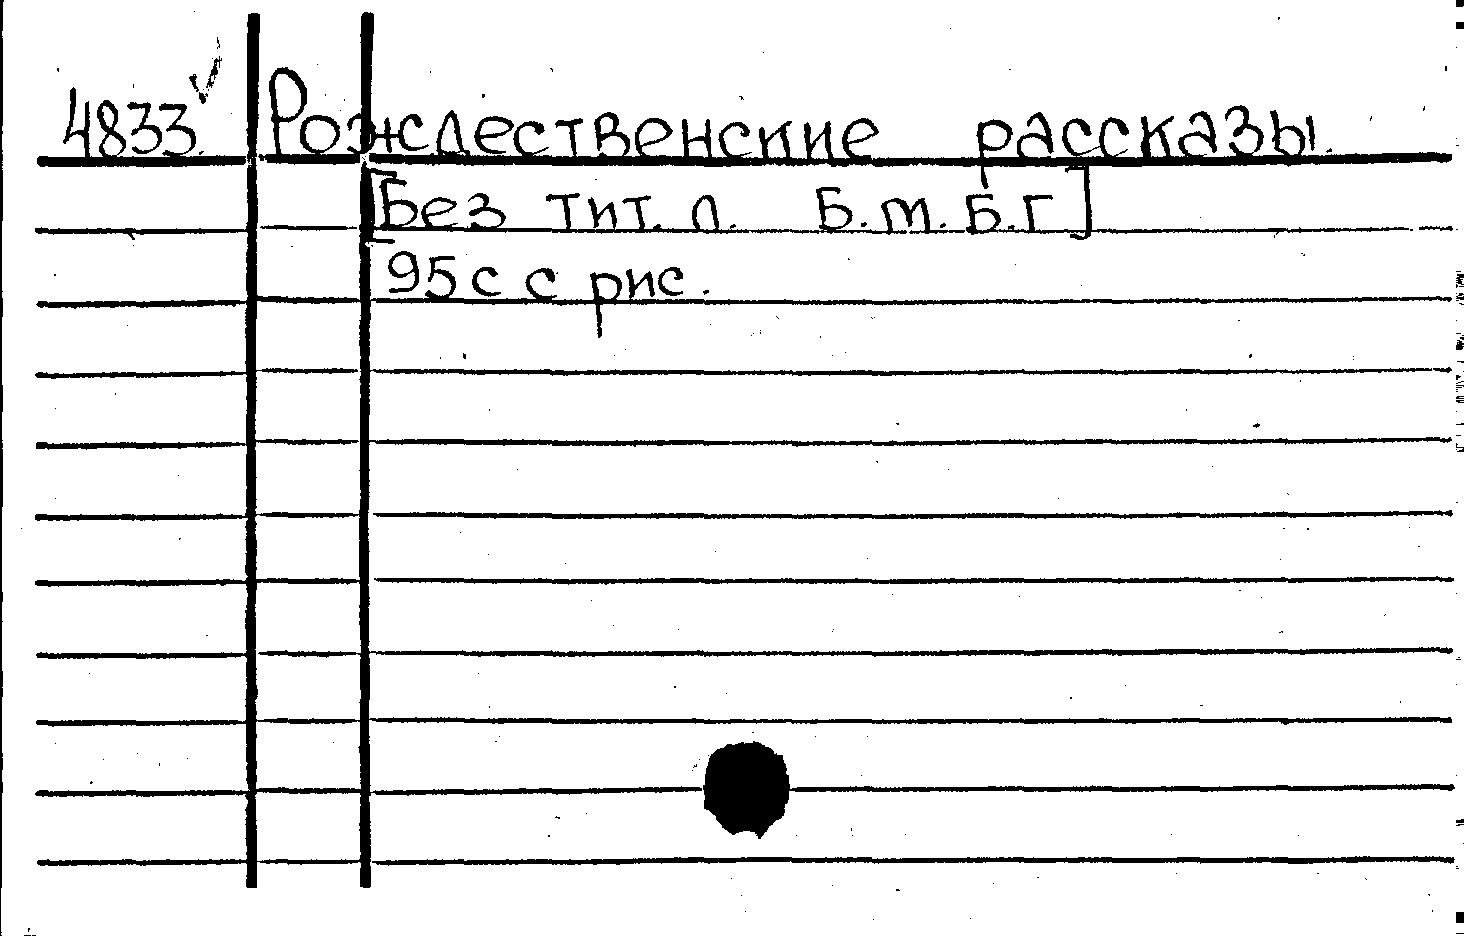 4833. Рождественские рассказы.
[Без тит. л. Б.м. Б.г]
95 с с рис.